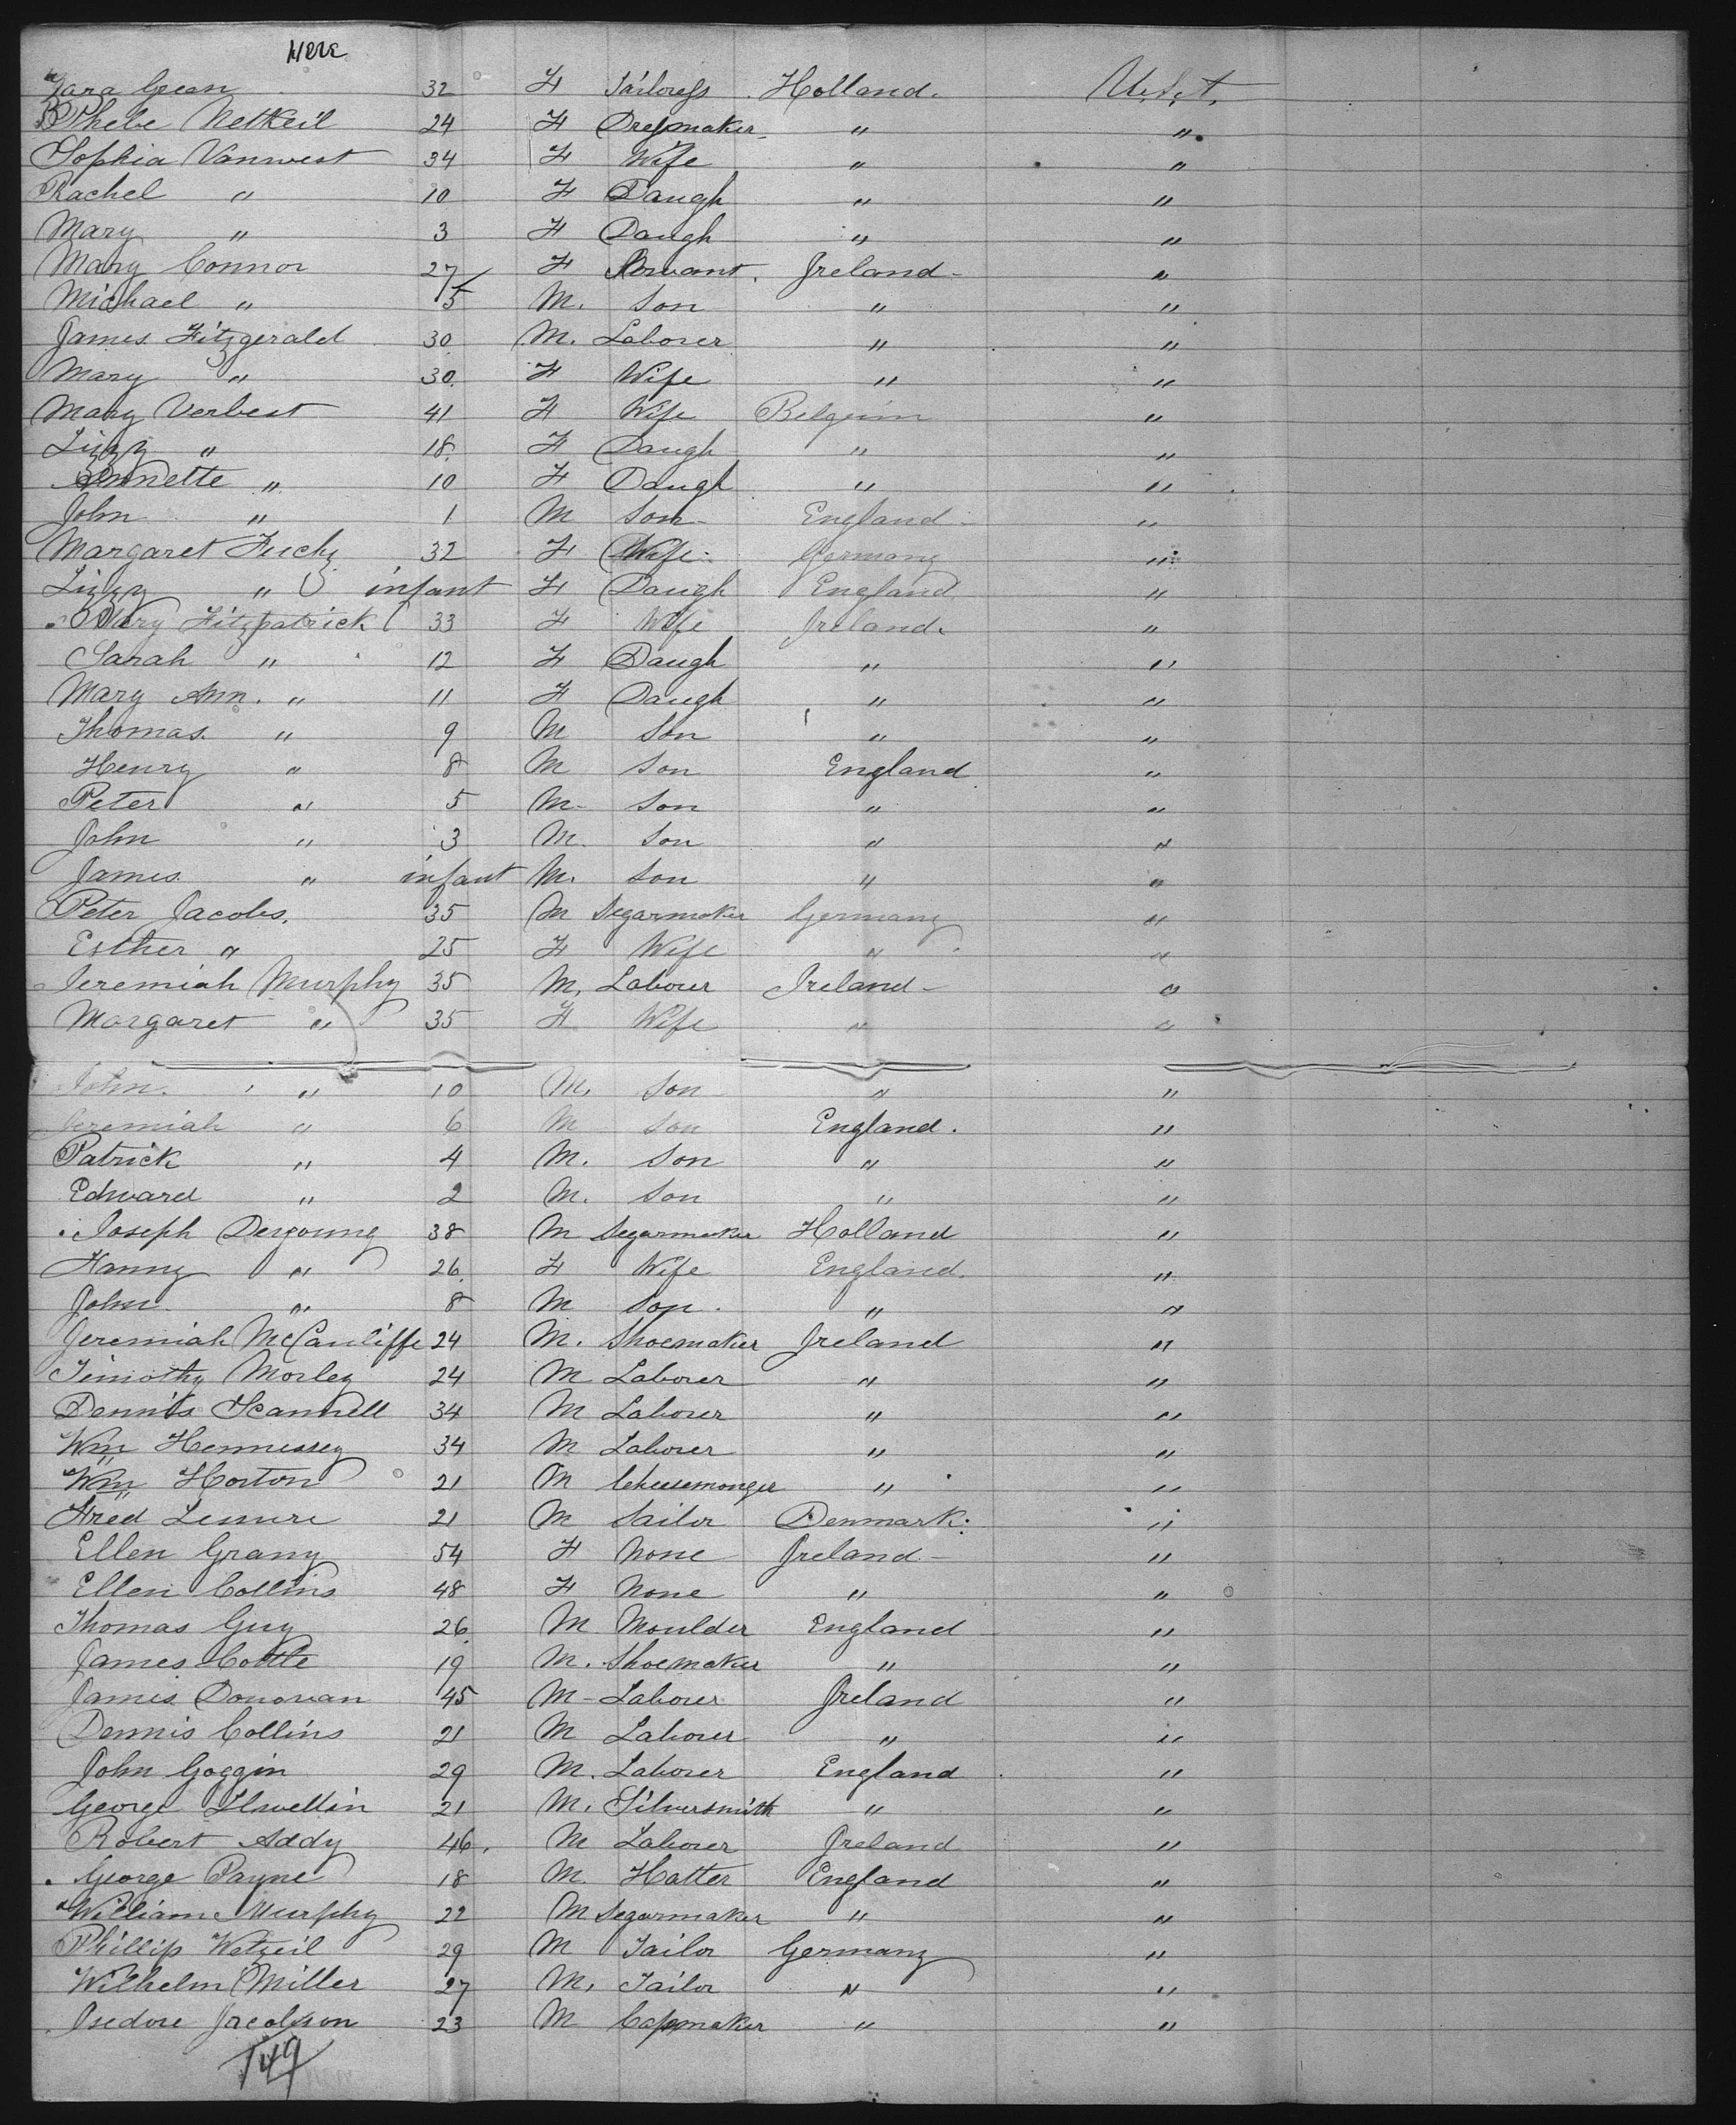 Here
Sara Green 32 F Tailoress Holland. U.S.t.
Phebe Netkeil 24 F Dressmaker " "
Sophia Vanwest 34 F Wife " "
Rachel " 10 F Daugh " "
Mary " 3 F Daugh " "
Mary Connor 27 F Servant. Ireland - "
Michael " 5 M. Son " "
James Fitzgerald 30 M. Laborer " "
Mary " 30. F Wife " "
Mary Verbest 41 F Wife Belgium "
Lizzy " 18. F Daugh " "
Annette " 10 F Daugh " "
John " 1 M Son - England - "
Margaret Fuchy 32 F Wife - Germany "
Lizzy " infant F Daugh England "
Mary Fitzpatrick 33 F Wife Ireland. "
Sarah " 12 F Daugh " "
Mary Ann. " 11 F Daugh " "
Thomas. " 9 M Son " "
Henry " 8 M Son England "
Peter " 5 M - Son " "
John " 3 M. Son " "
James " infant M. Son " "
Peter Jacobs. 35 M Segarmaker Germany "
Esther " 25 F Wife " "
Jeremiah Murphy 35 M. Laborer Ireland - "
Margaret " 35 F Wife " "
John. " 10 M. Son " "
Jeremiah " 6 M Son England. "
Patrick " 4 M. Son " "
Edward " 2 M. Son " "
Joseph Deyoung 38 M Segarmaker Holland "
Hanny " 26. F Wife England. "
John " 8 M Son. " "
Jeremiah McCauliffe 24 M. Shoemaker Ireland "
Timothy Morley 24 M Laborer " "
Dennis Scannell 34 M Laborer " "
Wm Hennessey 34 M Laborer " "
Wm Horton 21 M Cheesemonger " "
Fred 21 M Sailor Denmark. "
Ellen Grany 54 F None Ireland - "
Ellen Collins 48 F None " "
Thomas Guy 26. M Moulder England "
James Cottle 19 M. Shoemaker " "
James Donovan 45 M - Laborer Ireland "
Dennis Collins 21 M Laborer " "
John Goggin 29 M. Laborer England "
George Llwellin 21 M. Silversmith " "
Robert Addy 46. M Laborer Ireland "
George Payne 18 M. Hatter England "
William Murphy 22 M Segarmaker " "
Phillip Wetzeil 29 M Tailor Germany "
Wilhelm Miller 27 M. Tailor " "
Isedore Jacobson 23 M Capmaker " "
149